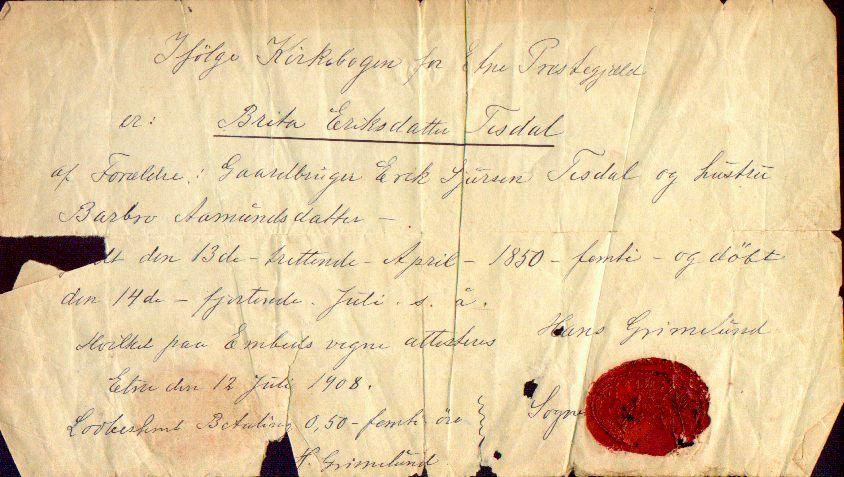 Ifölge Kirkebogen for Etne Præstegjæld
er: Brita Eriksdatter Tisdal
af Forældre: Gaardbruger Erik Sjursen Tisdal og hustru
Barbro Aamundsdatter –
dt den 13de – trettende – April – 1850 – femti – og döbt
den 14de – fjortende . Juli . s. å.
Hvilket paa Embeds vegne attesteres
Hans Grimelund
Etne den 12 Juli 1908.
Sogne
Lovbestemt Betaling 0,50 – femti öre
H. Grimelund